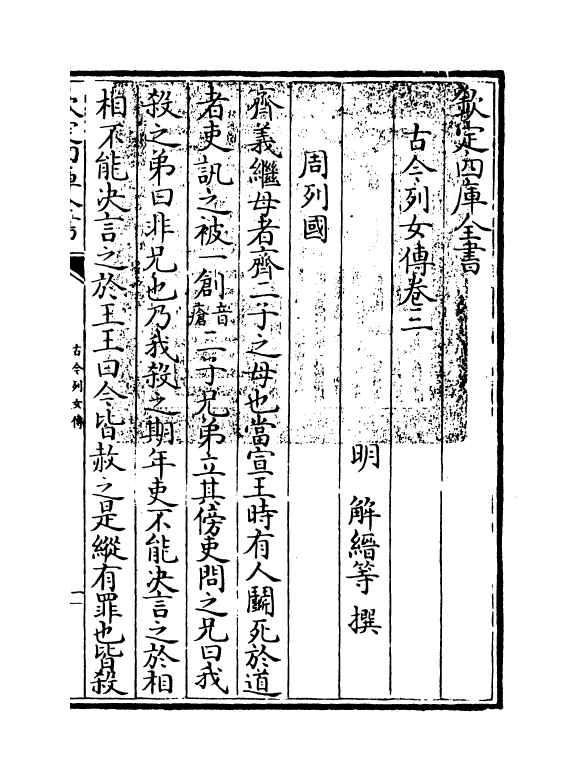 欽定四庫全書
古今列女傳卷三
明 解縉等 撰
周列國
齊義繼母者齊二子之母也當宣王時有人鬬死於道
者吏訊之被一創音瘡二子兄弟立其傍吏問之兄曰我
殺之弟曰非兄也乃我殺之期年吏不能决言之於相
相不能决言之於王王曰今皆赦之是縱有罪也皆殺
古今列女傳
一